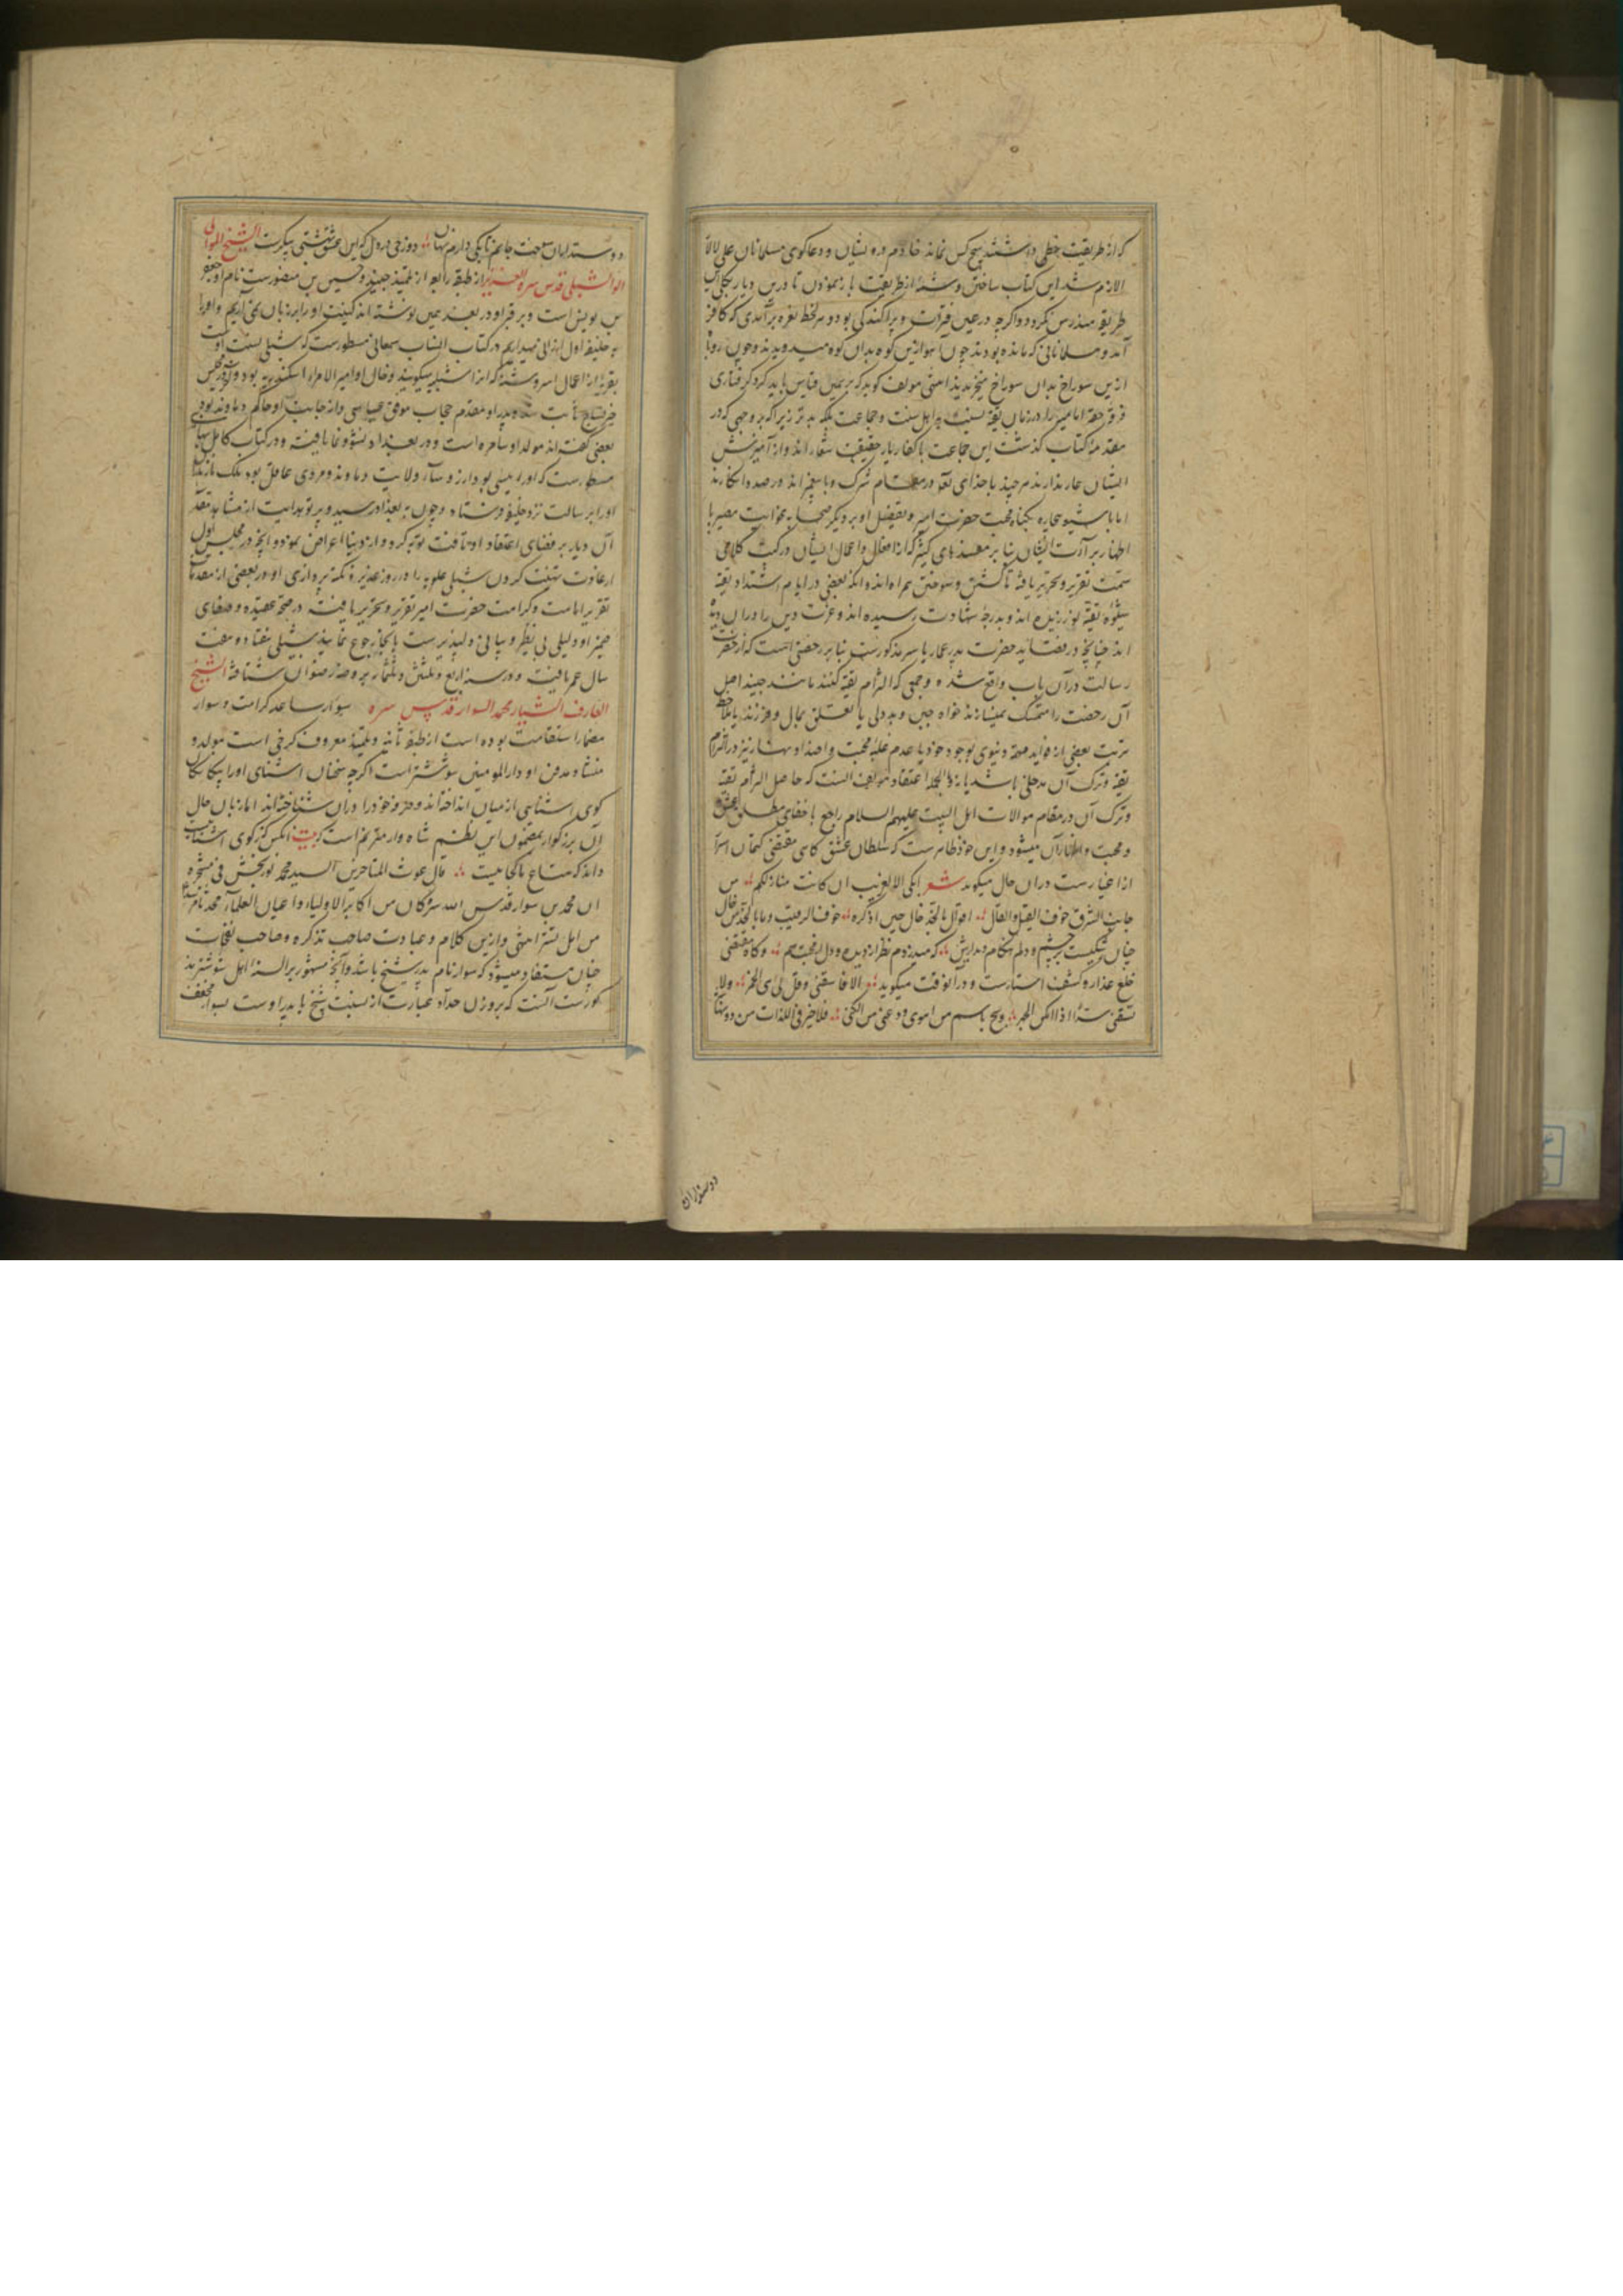 که از طریقت خطی داشتند هیچ کس نماند خادم دره نشان و دعاکوی مسلمانان علی لالا
لازم شد این کتاب ساختن و شمهٔ از طریقت باز نمودن تا درین دیار بکلی این
طریقه مندرس نکردد و اکرچه در عین فترات و پراکندکی بود و هر لحظه نعره برآمدی که کافر
آمد و مسلمانانی که مانده بودند چون آهو ازین کوه بدان کوه میدویدند و چون روباه
ازین سوراخ بدان سوراخ میخزیدند انتهی مولف کوید که برهمین قیاس باید کرد کرفتاری
فرقه حقه امامیه را در زمان تقیه نسبت به اهل سنت و جماعت بلکه بدتر زیرا که بر وجهی که در
مقدمهٔ کتاب کذشت این جماعت با کفار یار حقیقت شعار اند و از آمیزش
ایشان عار ندارند هرچند با خدای تعالی در مقام شرک و با پیغمبر اند در صدد انکارند
اما با شیعه بیچاره بکناه محبت حضرت امیر و تفضیل او بر دیکر صحابه
اظهار برآرت ایشان بنا بر مفسدهای کثیر که از افعال و اعمال ایشان در کتب کلامی
سمت تقریر و تحریر یافته تا کشتن و سوختن همراه اند و آنکه بعضی در ایام اشتداد تقیه
شیوه تقیه نورزیده اند و بدرجهٔ شهادت رسیده اند و عزت دین را در آن دیده
اند چنانچه در فضاید حضرت پدر عمار یاسر مذکورست بنا بر رخصتی است که از حضرت
رسالت در آن باب واقع شده و جمعی که التزام تقیه کنند مانند جنید اصل
آن رخصت را متمسک میسازند خواه جبن و بددلی یا تعلق بمال و فرزند یا ملاحظه
ترتب بعضی از فواید مهمه دنیوی بوجود خود یا عدم غلبه محبت و امثال آن نیز در التزام
تقیه و ترک آن مدخلی باشد یا نه و بالجمله اعتقاد مولف آنست که حاصل التزام تقیه
و ترک آن در مقام موالات اهل البیت علیهم السلام راجع با خفای مطلق عشق
و محبت و اظهار آن میشود و این خود ظاهرست که سلطان عشق کاهی مقتضی کتمان اسرار
از اغیارست در آن حال میکوید شعر ابکی الا لغریب ان کانت منازلکم من
جانب الشرق خوف القیل و القال اقول بالخد خال حین اذکره خوف الرقیب و ما بالخد من خال
چنان شکیست چشم و دلم هنکام دیدارش که میدزدم نظر از دیده و دل از محبت هم و کاه مقتضی
خلع عذار و کشف استارست و در آنوقت میکوید الا فاسقنی و قل لی هی الخمر ولا
تسقنی سرا اذا امکن الجهر وبح باسم من اهوی ودعنی من الکنی فلا خیر فی اللذات من دونها
دوستداران
دوستداران بهشت جا هم تا یکی دارم نهان دوزخی در دل که این عشق بهشتی پیکرست الشیخ الموالی
ابو الشبلی قدس سره العزیز از طبقه رابعه از تلمیذ جنید و حسین بن منصورست نام او جعفر
بن یونس است و بر قبر او در بغداد همین نوشته اند کنیت او را بر زبان نمی آریم و او را
به خلیفه اول ارزانی میداریم در کتاب انساب سمعانی مسطورست که شبلی نسبت او
بقریه از اعمال اسروشنه که آنرا شبلیه میکویند و خال او امیر الامراء اسکندریه بود و او در مجلس
خیر نساج تایب شده و پدر او مقدم حجاب موفق عباسی و از جانب او حاکم دماوند بود
بعضی کفته اند مولد او سامره است و در بغداد نشوونما یافته و در کتاب کامل بهائی
مسطورست که او رئیسی بود از رؤسآء ولایت دماوند و مردی عاقل بود ملک مازندران
او را برسالت نزد خلیفه فرستاد و چون ببغداد رسید و پرتو هدایت از مشاهد مقدسه
آن دیار بر فضای اعتقاد او تافت توبه کرد و از دنیا اعراض نمود و آنچه در مجلس اول
از تهنیت کردن شبلی علویه را در روز غدیر و نکته پردازی او در بعضی از مقدمات
تقریر امامت و کرامت حضرت امیر تقریر و تحریر یافته در صحت عقیده و صفای
ضمیر او دلیلی بی نظیر و بیانی دلپذیرست بآنجا رجوع نمایند شبلی هفتاد و هفت
سال عمر یافت و در سنه اربع و ثلثین و ثلثمایه بروضه رضوان شتافت الشیخ
العارف الشیبار محمد السوار قدس سره سوار ساعد کرامت و سوار
مضمار استقامت بوده است از طبقه ثانیه و تلمیذ معروف کرخی است مولد و
منشاء و مدفن او دار المومنین شوشترست اکرچه سخنان آشنای او را بیکانکان
کوی آشنایی از میان انداخته اند و حرف خود را در آن شناخته اند اما زبان حال
آن بزرکوار بمضمون این نظم شاه وار مترنم است که بیت آنکس که ز کوی آشناییست
داند که متاع ما کجاییست قال غوث المتاخرین السید محمد نوربخش فی مشجره
ان محمد بن سوار قدس الله سره کان من اکابر الاولیاء و اعیان العلمآء
من اهل تستر انتهی و ازین کلام و عبارت صاحب تذکره و صاحب نفحات
چنان مستفاد میشود که سوار نام پدر شیخ باشد و آنچه مشهور بر السنه اهل شوشترند
کورست آنست که بر وزن حدّاد عبارت از نسبت شیخ یا پدر اوست بسوار مخفف